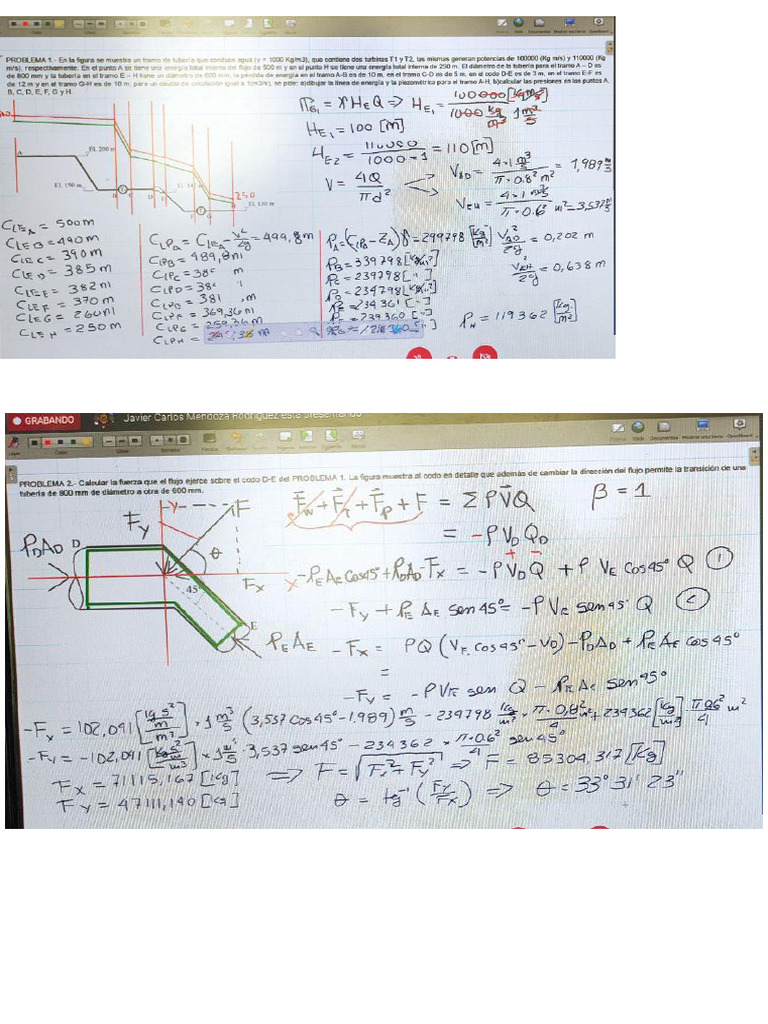 PROBLEMA 1.- En la figura se muestra un tramo de tubería que conduce agua (γ = 1000 Kg/m3), que contiene dos turbinas T1 y T2, las mismas generan potencias de 100000 (Kg m/s) y 110000 (Kg
m/s), respectivamente. En el punto A se tiene una energía total interna del flujo de 500 m y en el punto H se tiene una energía total interna de 250 m. El diámetro de la tubería para el tramo A – D es
de 800 mm y la tubería en el tramo E – H tiene un diámetro de 600 mm, la pérdida de energía en el tramo A-B es de 10 m, en el tramo C-D es de 5 m, en el codo D-E es de 3 m, en el tramo E-F es
de 12 m y en el tramo G-H es de 10 m; para un caudal de circulación igual a 1(m3/s), se pide: a)dibujar la línea de energía y la piezométrica para el tramo A-H, b)calcular las presiones en los puntos A,
B, C, D, E, F, G y H.
H_E1 = 100 [m]
H_E2 = 110000 / 1000 * 1 = 110 [m]
V = 4Q / πd²
EL 200 m
A
EL 150 m
EL 130 m
250
CLE_A = 500 m
CLE B = 490 m
CLE C = 390 m
CLE D = 385 m
CLE E = 382 m
CLE F = 370 m
CLE G = 260 m
CLE H = 250 m
CLP_A = CLE_A - V²/2g = 499,8 m
CLP B = 489,8 m
CLP F = 369,36 m
CLP G = 259,36 m
CLP H =
P_A = (CLP - Z_A) γ = 299798 [kg/m²]
P_B = 339798 [kg/m²]
P_C = 239798 ["]
P_D = 234798 ["]
P_E = 234361 ["]
P_F = 239360 ["]
V²/2g = 0,202 m
V²/2g = 0,638 m
P_H = 119362 [kg/m²]
GRABANDO
Javier Carlos Mendoza Rodríguez está presentando
PROBLEMA 2.- Calcular la fuerza que el flujo ejerce sobre el codo D-E del PROBLEMA 1. La figura muestra al codo en detalle que además de cambiar la dirección del flujo permite la transición de una
tubería de 800 mm de diámetro a otra de 600 mm.
F_w + F_r + F_p + F = Σ ρ V Q
β = 1
= - ρ V_D Q_D
-Y
F
F_y
θ
F_x
X
45°
P_D A_D
D
E
P_E A_E
- P_E A_E cos 45° + P_D A_D - F_x = - ρ V_D Q + ρ V_E cos 45° Q ①
- F_y + P_E A_E sen 45° = - ρ V_E sen 45° Q ②
- F_x = ρ Q (V_E cos 45° - V_D) - P_D A_D + P_E A_E cos 45°
=
- F_y = - ρ V_E sen Q - P_E A_E sen 45°
- F_x = 102,041 [kg s²/m / m³] * 1 m³/s (3,537 cos 45° - 1,989) m/s - 234798 kg/m² * π*0,8²/4 m² + 234362 [kg/m²] π 0,6²/4 m²
- F_y = - 102,041 [kg s²/m / m³] * 1 m³/s * 3,537 sen 45 - 234362 * π*0.6²/4 sen 45°
F_x = 71115,167 [kg]
F_y = 47111,140 [kg]
⇒ F = √(F_x² + F_y²) ⇒ F = 85304,317 [kg]
θ = tg⁻¹ (F_y / F_x) ⇒ θ = 33° 31' 23"